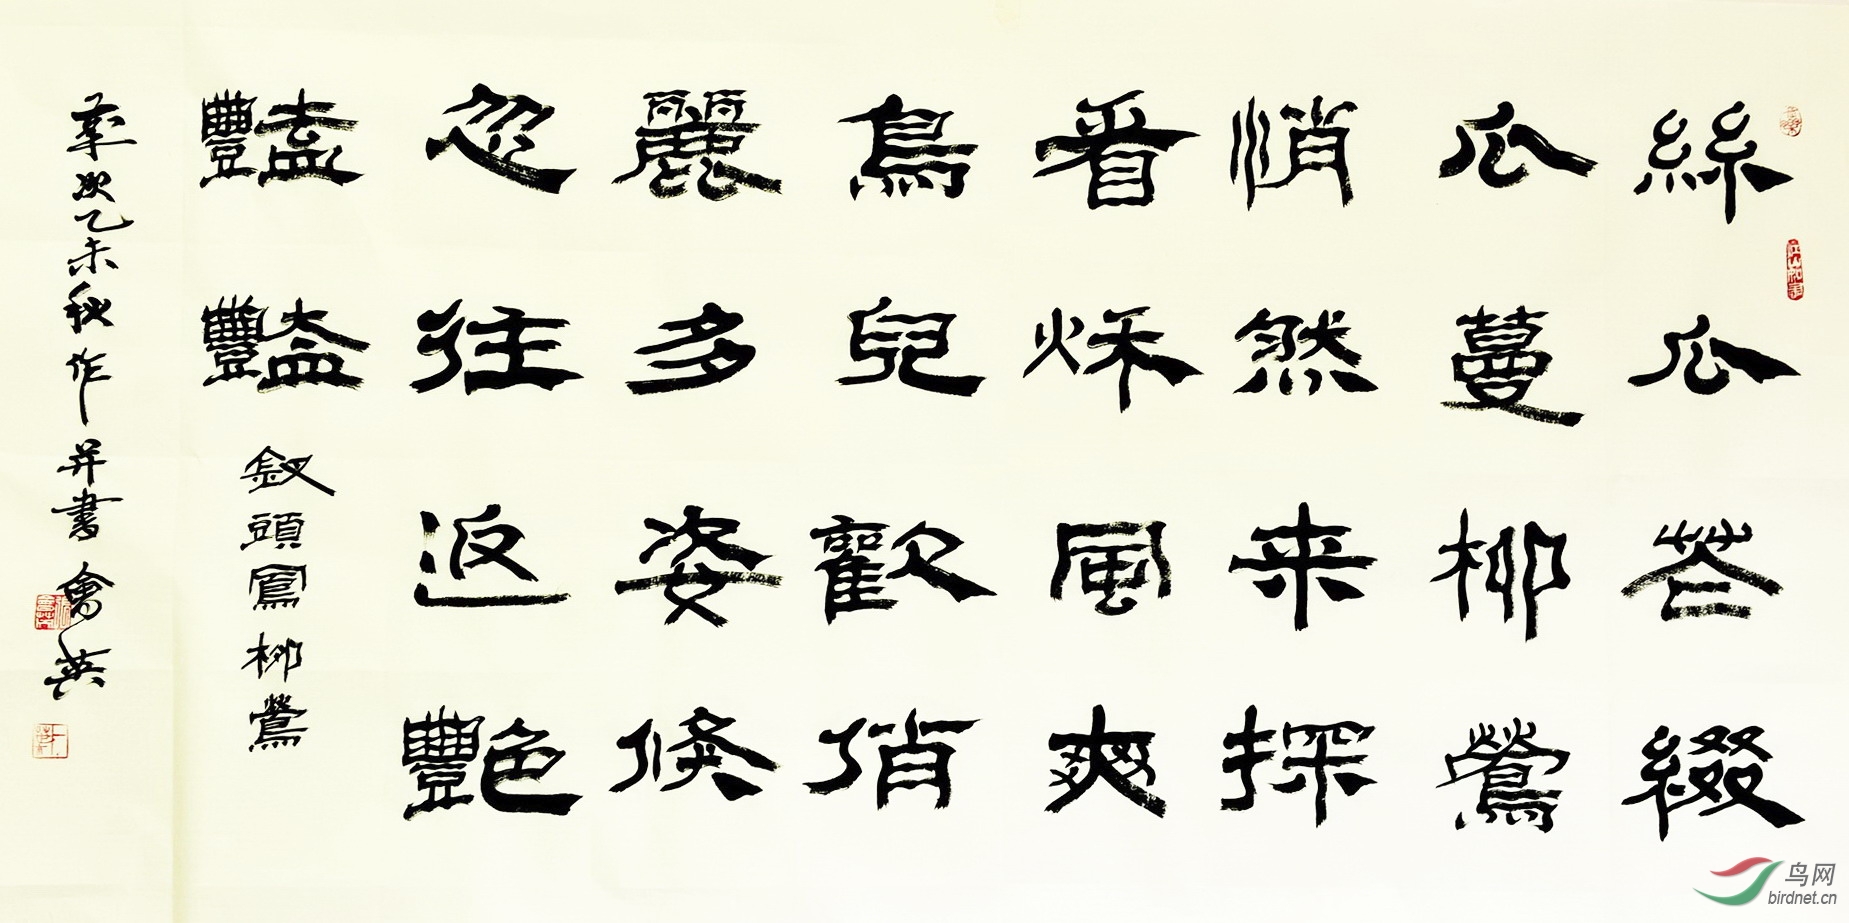 絲瓜芲綴
瓜蔓柳鶯
悄然来探
看秌風爽
鳥兒歡俏
麗多姿倏
忽往返艷
豔豔
釵頭鳳柳鶯
歲次乙未秋作并書會英
鸟网
birdnet.cn